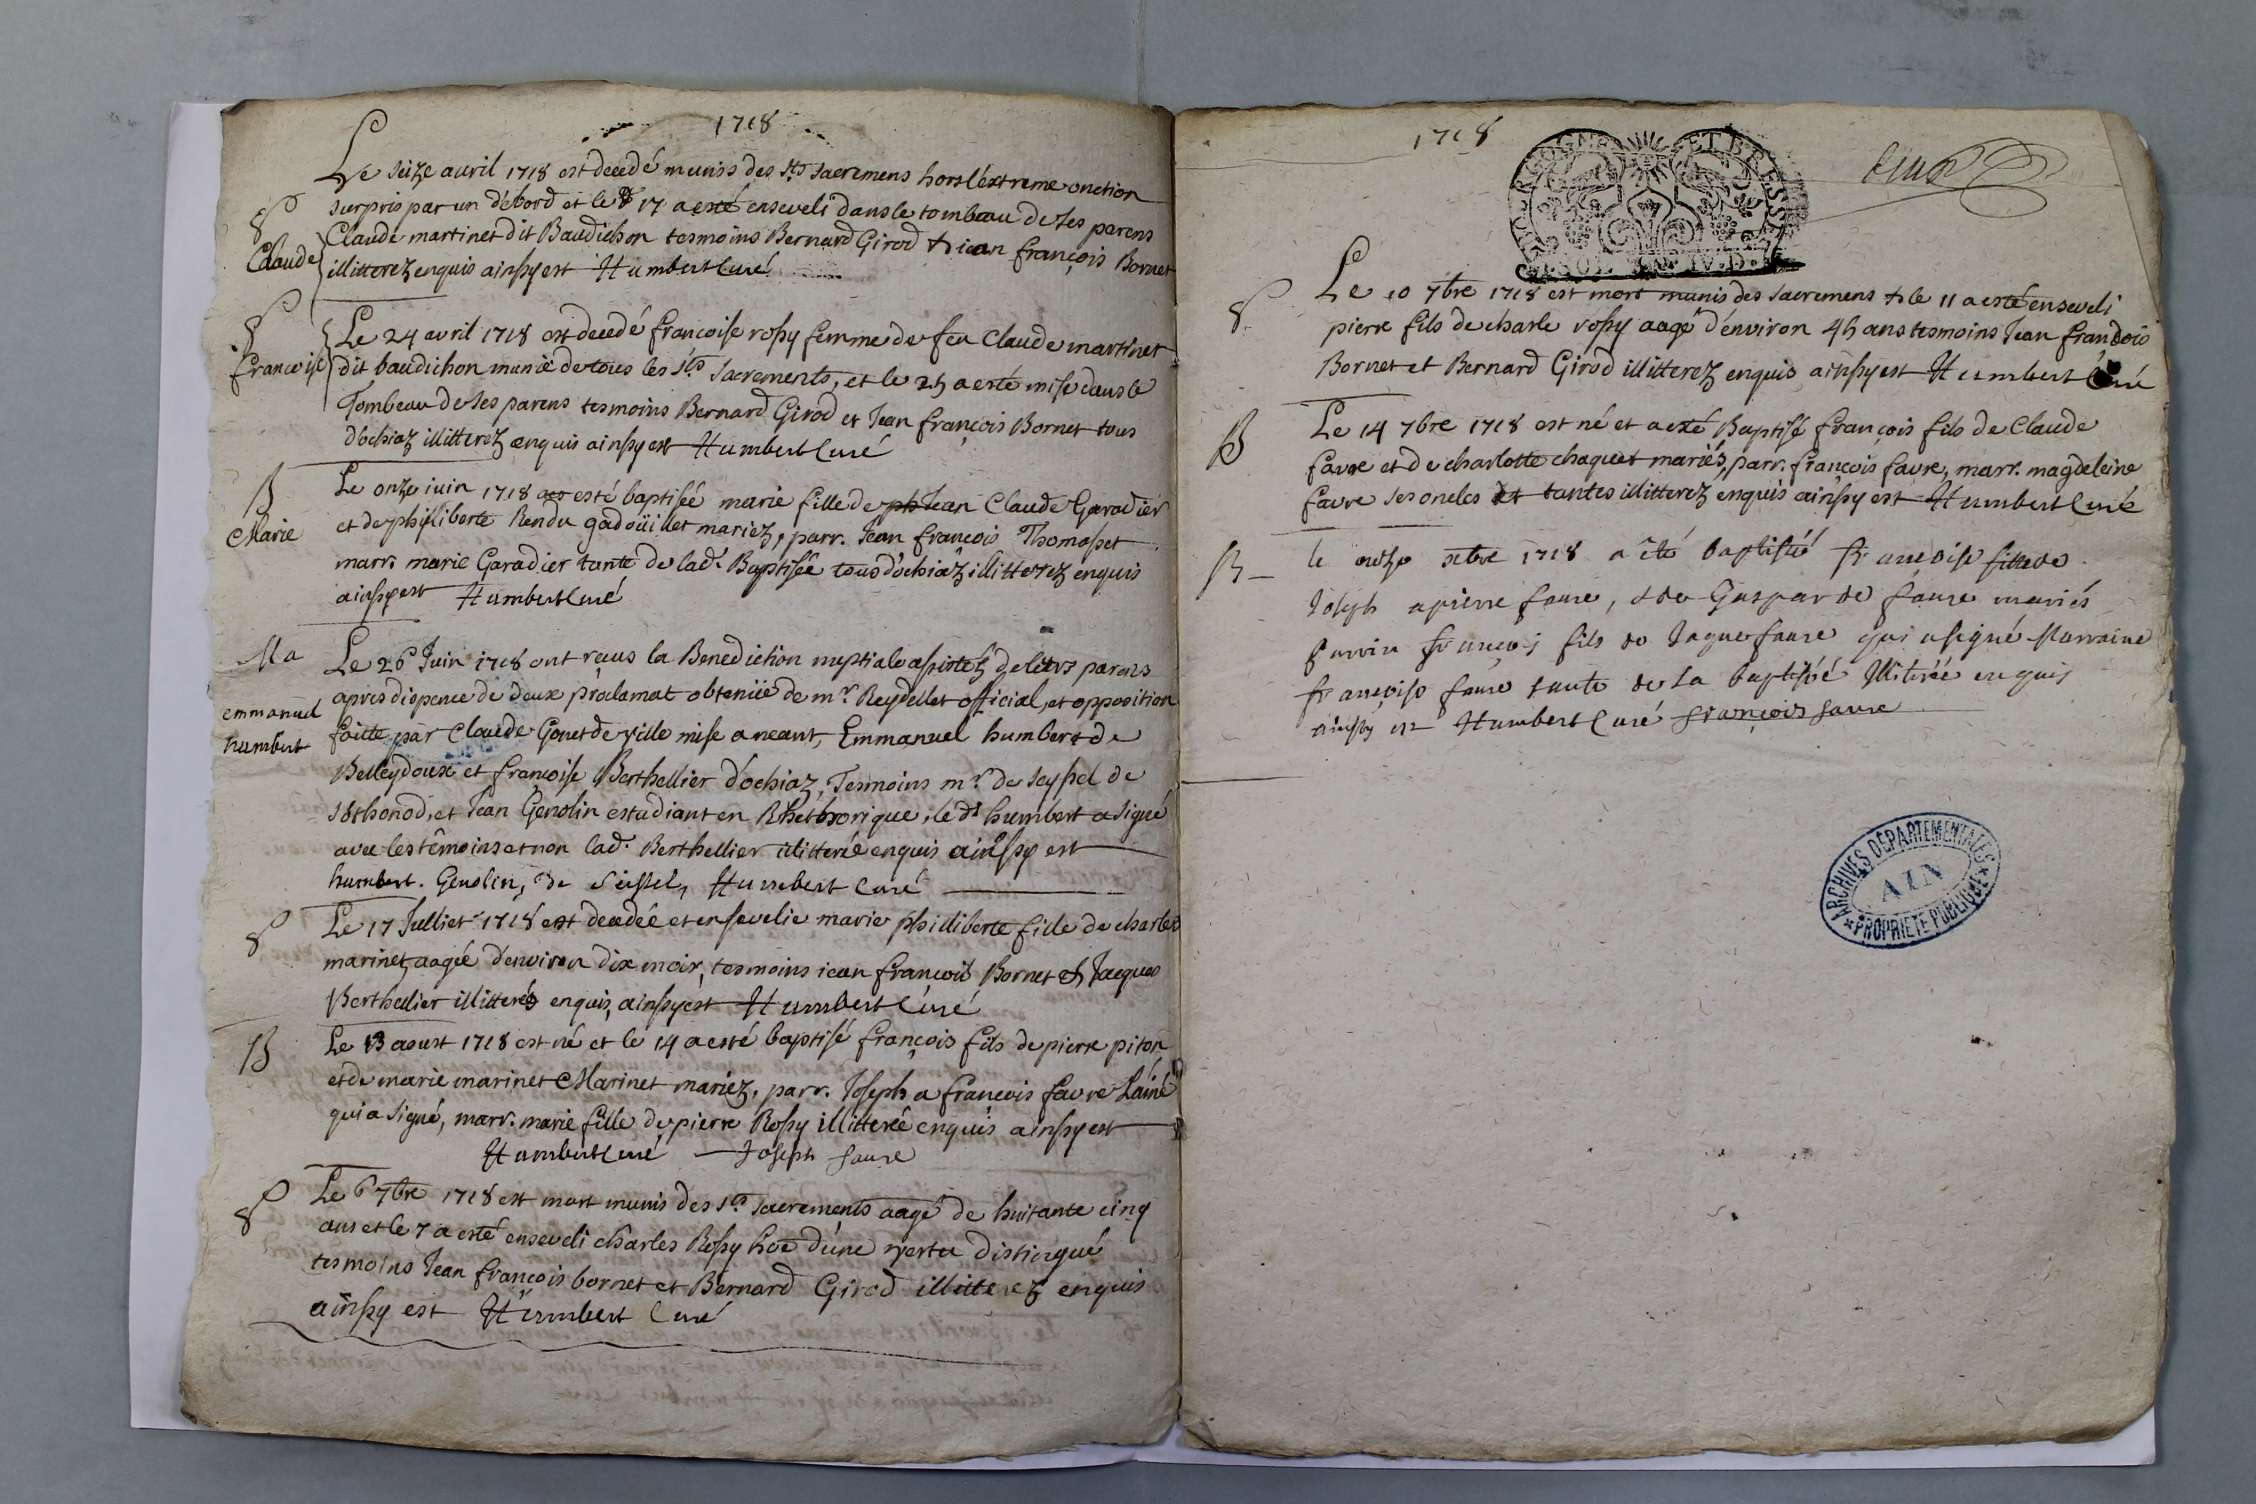 1718
Le seize avril 1718 est decedé muniss des sts sacremens hors l'extreme onction
surpris par un débord et le 17 a esté enseveli dans le tombeau de ses parens
Claude martinet dit Baudichon tesmoins Bernard Girod & jean françois Bornet
Claude
illitterez enquis ainsy est Humbert Curé
Le 24 avril 1718 est decedé françoise rossy femme de feu Claude martinet
françoise
dit baudichon munie de tous les sts sacrements, et le 25 a esté mise dans le
Tombeau de ses parens tesmoins Bernard Girod et Jean françois Bornet tous
d'ochiaz illitterez enquis ainsy est Humbert Curé
B
Le onze juin 1718 a esté baptisée marie fille de Jean Claude Garadier
Marie
et de philiberte Rendu gadoüillet mariez, parr. Jean françois Thomasset
marr. marie Garadier tante de lad. Baptisée tous d'ochiaz illitterez enquis
ainsy est Humbert Curé
Ma
Le 26 Juin 1718 ont reçus la Benediction nuptiale assistéz de leurs parens
apres dispence de deux proclamat obtenüe de mr. Reydellet official, et opposition
emmanuel
humbert
faitte par Claude Gouet de ville mise a neant, Emmanuel humbert de
Belleydoux et françoise Berthellier d'ochiaz, Tesmoins mr. de Seyssel de
Sothonod, et Jean Genolin estudiant en Rhethorique, le dt humbert a signé
avec les têmoins et non lad. Berthellier illitterée enquis ainsy est
humbert. Genolin, de Seissel, Humbert Curé
Le 17 Julliet 1718 est decedée et ensevelie marie philliberte fille de charles
marinet, aagée d'environ dix mois, tesmoins jean françois Bornet & Jacques
Berthellier illitterés enquis, ainsy est Humbert Curé
B
Le 13 aoust 1718 est né et le 14 a esté baptisé françois fils de pierre piton
et de marie marinet Marinet mariez, parr. Joseph a françois favre L'ainé
qui a signé, marr. marie fille de pierre Rossy illitterée enquis ainsy est
Humbert Curé Joseph faure
Le 6 7bre 1718 est mort munis des sts sacrements aagé de huitante cinq
ans et le 7 a esté enseveli charles Rossy hoe d'une vertu distingué
tesmoins Jean françois bornet et Bernard Girod illitterez enquis
ainsy est Humbert Curé
1718
Le 10 7bre 1718 est mort munis des sacremens & le 11 a esté enseveli
pierre fils de charle rossy aagé d'environ 45 ans tesmoins Jean françois
Bornet et Bernard Girod illitterez enquis ainsy est Humbert Curé
B
Le 14 7bre 1718 est né et a esté Baptisé françois fils de Claude
favre et de charlotte chaquet mariés, parr. françois favre, marr. magdeleine
favre ses oncles et tantes illitterez enquis ainsy est Humbert Curé
B
le onze 1718 a été baptisée françoise fille de
Joseph a pierre faure, & de Gasparde faure mariés
parrin françois fils de Jaque faure qui a signé Marraine
françoise faure tante de la baptisée Illitérée enquis
ainsy est Humbert Curé françois faure
ARCHIVES DEPARTEMENTALES
AIN
PROPRIETE PUBLIQUE